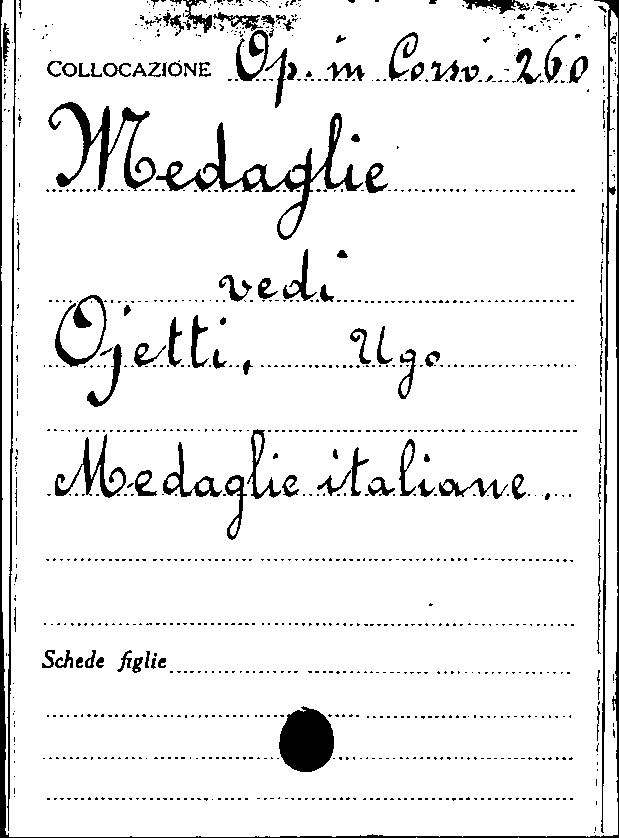 COLLOCAZIONE Op. in Corso. 260
Medaglie
vedi
Ojetti, Ugo
Medaglie italiane.
Schede figlie